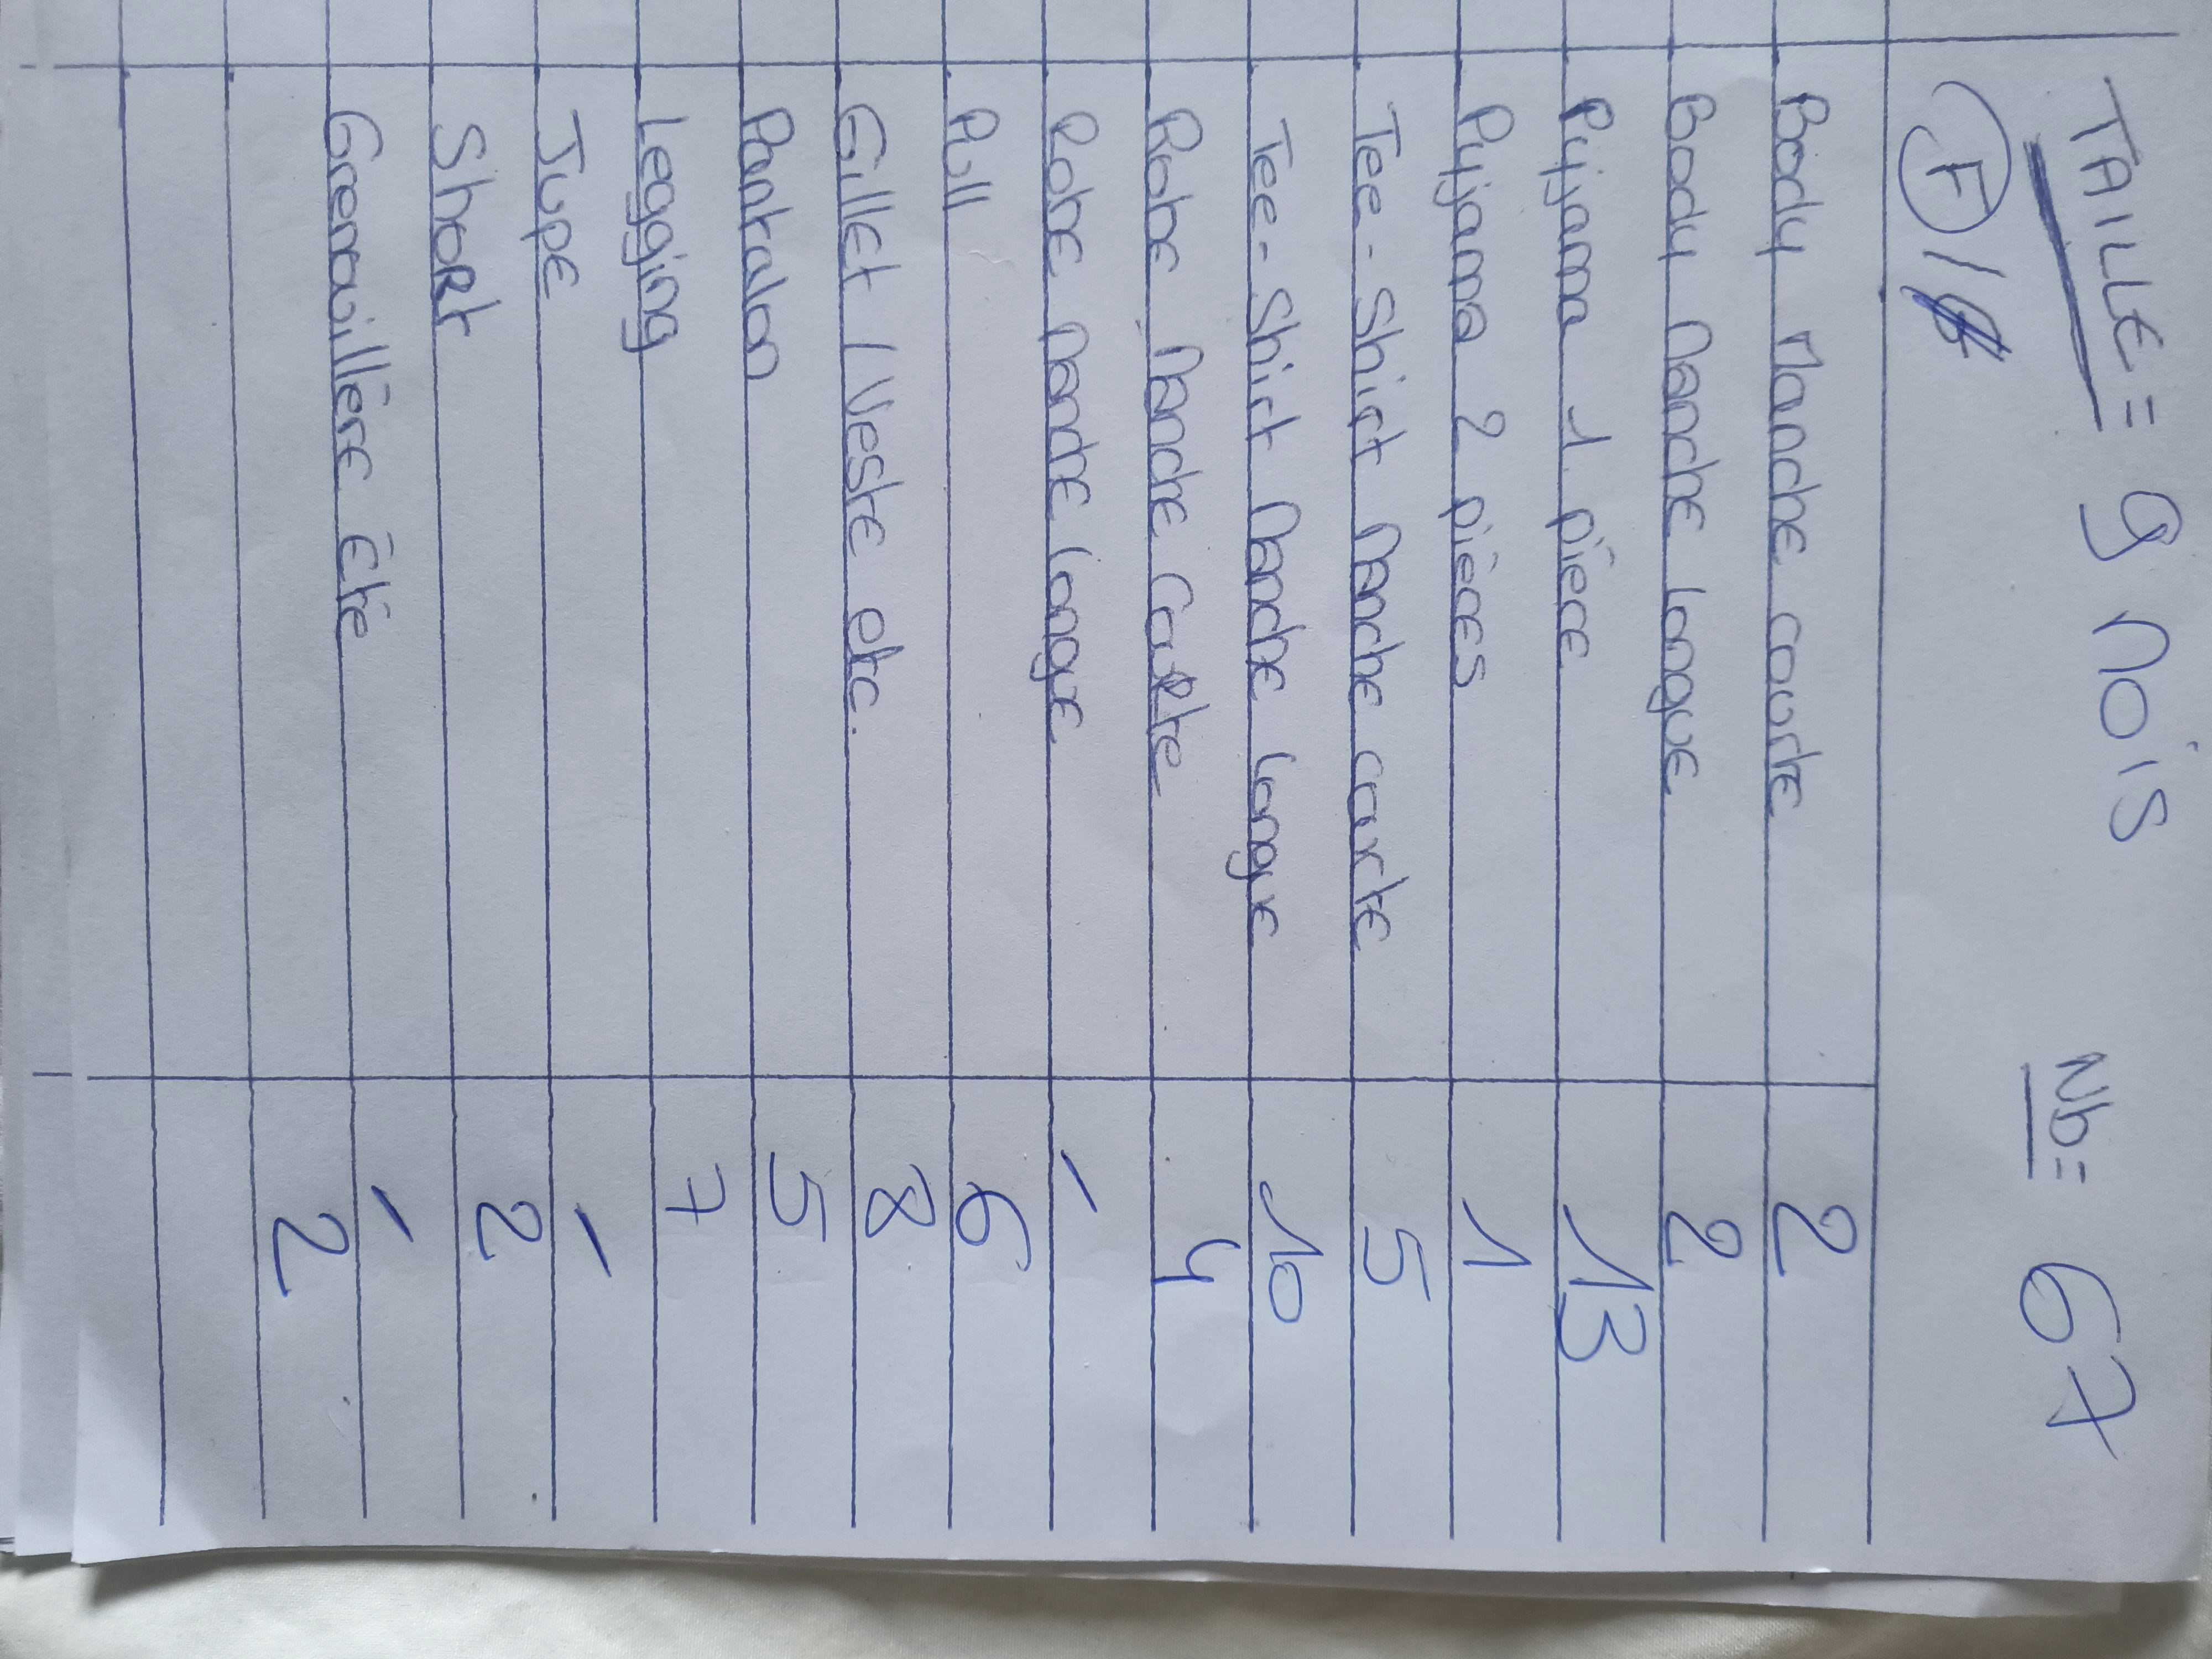 TAILLE = 9 Mois Nb = 67
F /
Body Manche courte 2
Body Manche longue 2
Pyjama 1 pièce 13
Pyjama 2 pièces 1
Tee-Shirt Manche courte 5
Tee-Shirt Manche longue 10
Robe Manche Courte 4
Robe Manche longue /
Pull 6
Gillet / Veste etc. 8
Pantalon 5
Legging 7
Jupe /
Short 2
Grenouillère Été /
2